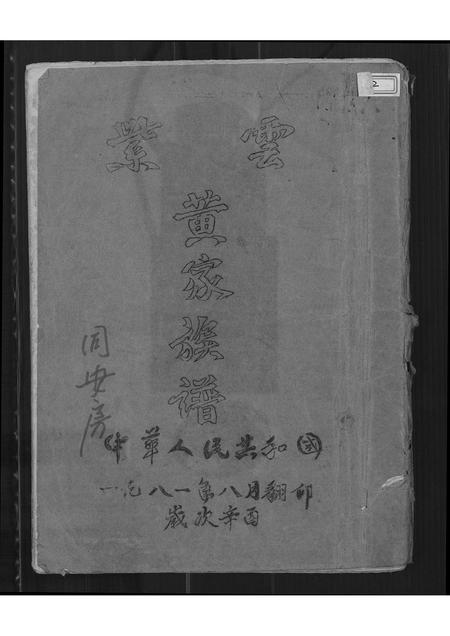 紫雲
黄家族谱
同安房
中華人民共和國
一九八一年八月翻印
歲次辛酉
2